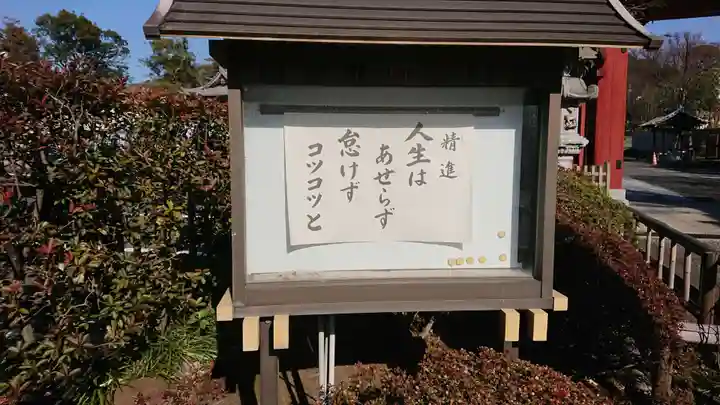 精進
人生は
あせらず
怠けず
コツコツと